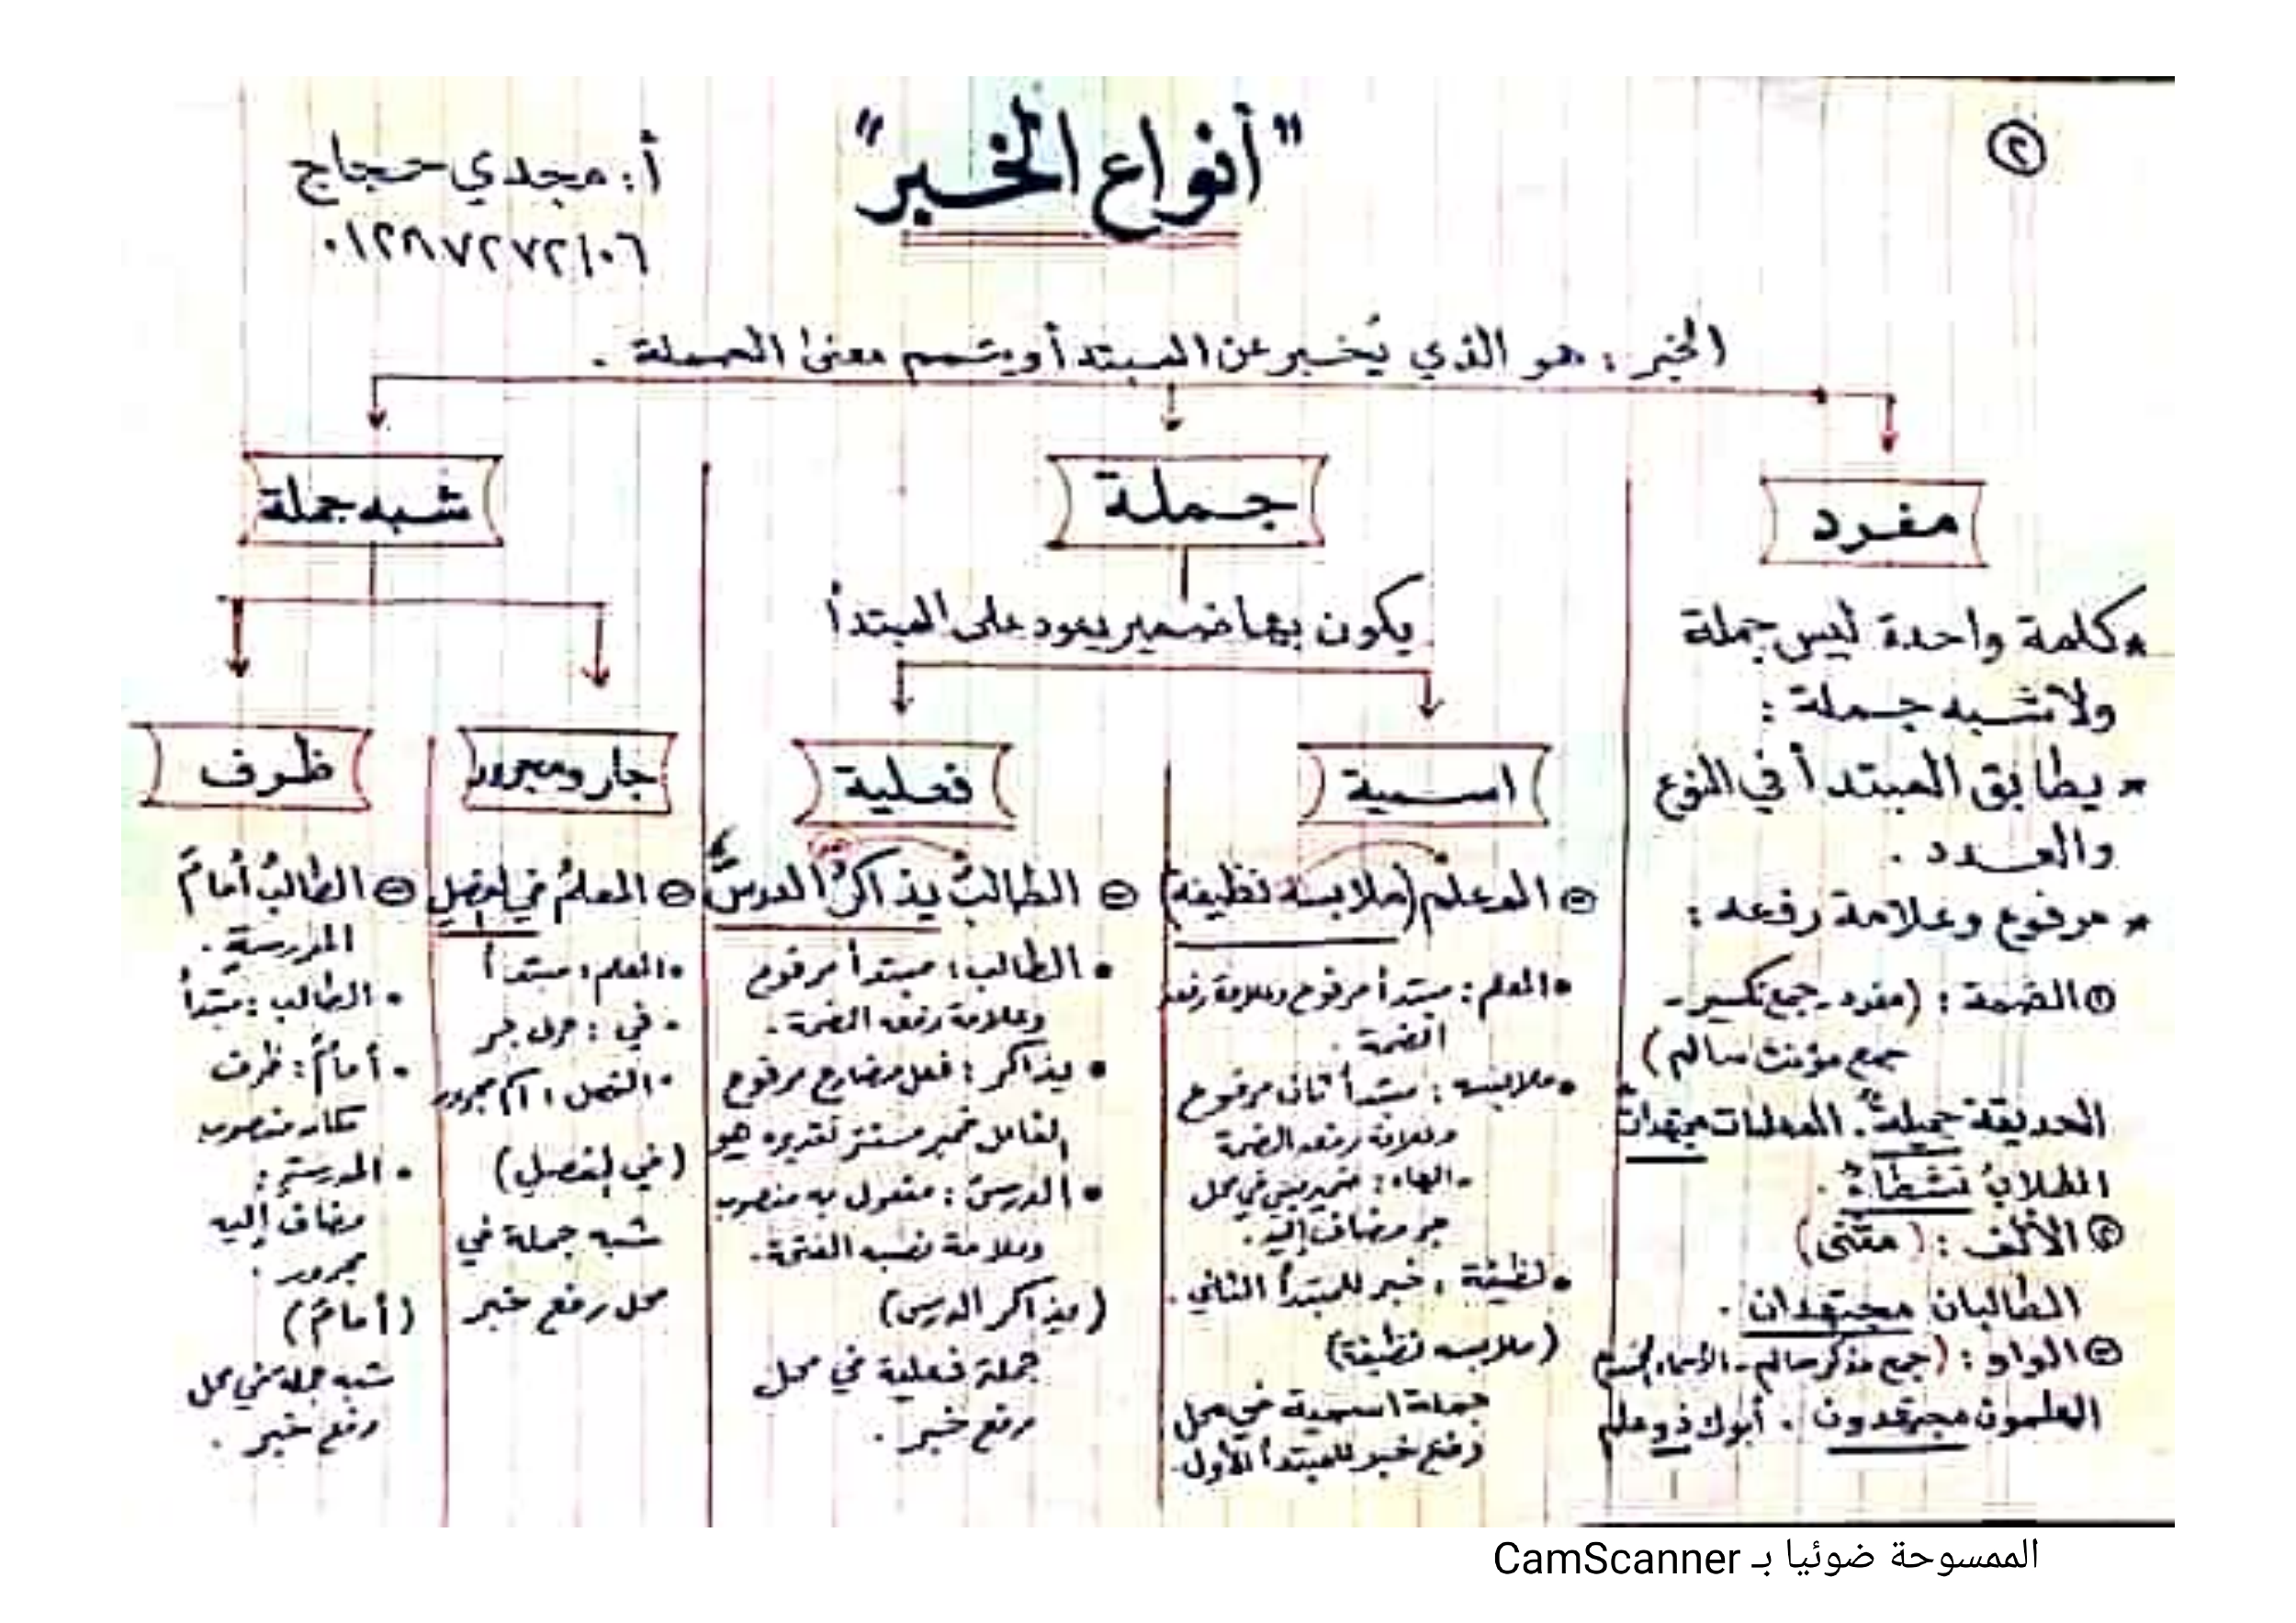 ٢
"أنواع الخبر"
أ: مجدي حجاج
٠١٢٨٧٢٧٢١٠٦
الخبر : هو الذي يُخبر عن المبتدأ ويتمم معنى الجملة .
مفرد
* كلمة واحدة ليس جملة
ولا شبه جملة :
* يطابق المبتدأ في النوع
والعدد .
* مرفوع وعلامة رفعه :
١ الضمة : (مفرد - جمع تكسير -
جمع مؤنث سالم)
الحديقة جميلةٌ . المعلمات مجتهداتٌ
الطلابُ نشطاءُ .
٢ الألف : (مثنى)
الطالبان مجتهدان .
٣ الواو : (جمع مذكر سالم - الأسماء الخمسة
المعلمون مجتهدون . أبوك ذو علم
جملة
يكون بها ضمير يعود على المبتدأ
اسمية
المعلمُ (ملابسه نظيفة)
• المعلم : مبتدأ مرفوع وعلامة رفعه
الضمة .
• ملابسه : مبتدأ ثانى مرفوع
وعلامة رفعه الضمة
- الهاء : ضمير مبني في محل
جر مضاف إليه .
• نظيفة : خبر للمبتدأ الثاني .
(ملابسه نظيفة)
جملة اسمية في محل
رفع خبر للمبتدأ الأول .
فعلية
الطالبُ يذاكرُ الدرسَ
• الطالب : مبتدأ مرفوع
وعلامة رفعه الضمة .
• يذاكر : فعل مضارع مرفوع
الفاعل ضمير مستتر تقديره هو
• الدرسَ : مفعول به منصوب
وعلامة نصبه الفتحة .
(يذاكر الدرس)
جملة فعلية في محل
رفع خبر .
شبه جملة
جار ومجرور
المعلمُ في الفصلِ
• المعلم : مبتدأ
• في : حرف جر
• الفصل : اسم مجرور
(في الفصلِ)
شبه جملة في
محل رفع خبر
ظرف
الطالبُ أمامَ
المدرسةِ .
• الطالب : مبتدأ
• أمامَ : ظرف
مكان منصوب
• المدرسةِ :
مضاف إليه
مجرور .
(أمامَ)
شبه جملة في محل
رفع خبر .
الممسوحة ضوئيا بـ CamScanner